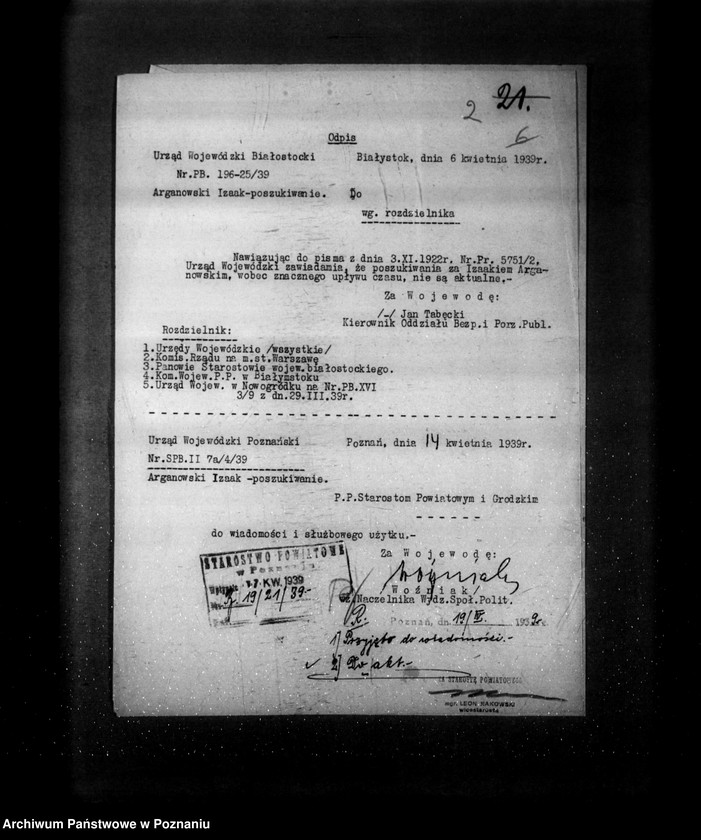 2 21.
6
Odpis
Urząd Wojewódzki Białostocki Białystok, dnia 6 kwietnia 1939r.
Nr.PB. 196-25/39
Arganowski Izaak-poszukiwanie. Do
wg. rozdzielnika
Nawiązując do pisma z dnia 3.XI.1922r. Nr.Pr. 5751/2,
Urząd Wojewódzki zawiadamia, że poszukiwania za Izaakiem Arga-
nowskim, wobec znacznego upływu czasu, nie są aktualne.-
Za W o j e w o d ę:
/-/ Jan Tabęcki
Kierownik Oddziału Bezp.i Porz.Publ.
Rozdzielnik:
1.Urzędy Wojewódzkie /wszystkie/
2.Komis.Rządu na m.st.Warszawę
3.Panowie Starostowie wojew.białostockiego.
4.Kom.Wojew.P.P. w Białymstoku
5.Urząd Wojew. w Nowogródku na Nr.PB.XVI
3/9 z dn.29.III.39r.
Urząd Wojewódzki Poznański Poznań, dnia 14 kwietnia 1939r.
Nr.SPB.II 7a/4/39
Arganowski Izaak -poszukiwanie.
P.P.Starostom Powiatowym i Grodzkim
do wiadomości i służbowego użytku.-
Za W o j e w o d ę:
STAROSTWO POWIATOWE
w Poznaniu
17.KW.1939
19/21/39-
W o ź n i a k
Naczelnika Wydz.Społ.Polit.
R.
Poznań, dn. 19/IV. 1939r.
1) Przyjęto do wiadomości.-
2) Do akt.-
ZA STAROSTĘ POWIATOWEGO
mgr. LEON RAKOWSKI
wicestarosta
Archiwum Państwowe w Poznaniu